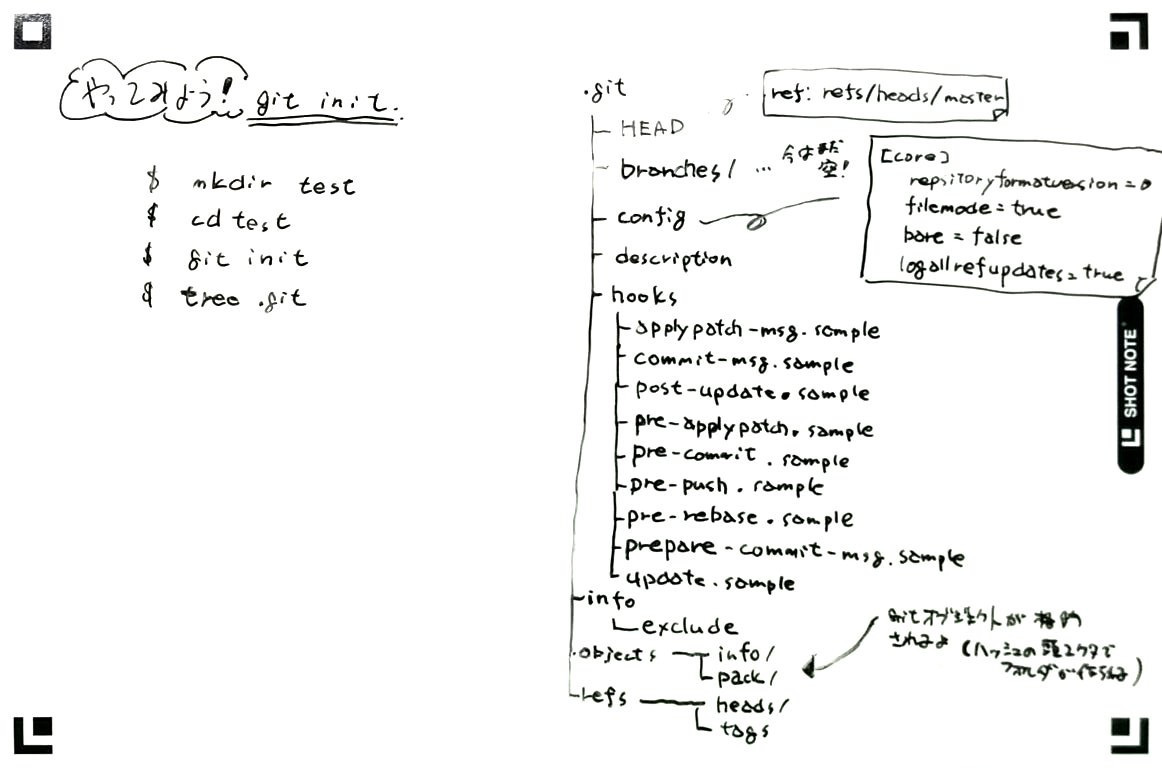 やってみよう! git init.
$ mkdir test
$ cd test
$ git init
$ tree .git
.git
HEAD
ref: refs/heads/master
branches/ ... 今はまだ
空!
config
[core]
repsitoryformatversion = 0
filemode = true
bare = false
logallrefupdates = true
description
hooks
applypatch-msg.sample
commit-msg.sample
post-update.sample
pre-applypatch.sample
pre-commit.sample
pre-push.sample
pre-rebase.sample
prepare-commit-msg.sample
update.sample
info
exclude
objects
info/
pack/
gitオブジェクトが格納
されるよ (ハッシュの頭2ケタで
フォルダが作られる)
refs
heads/
tags
SHOT NOTE